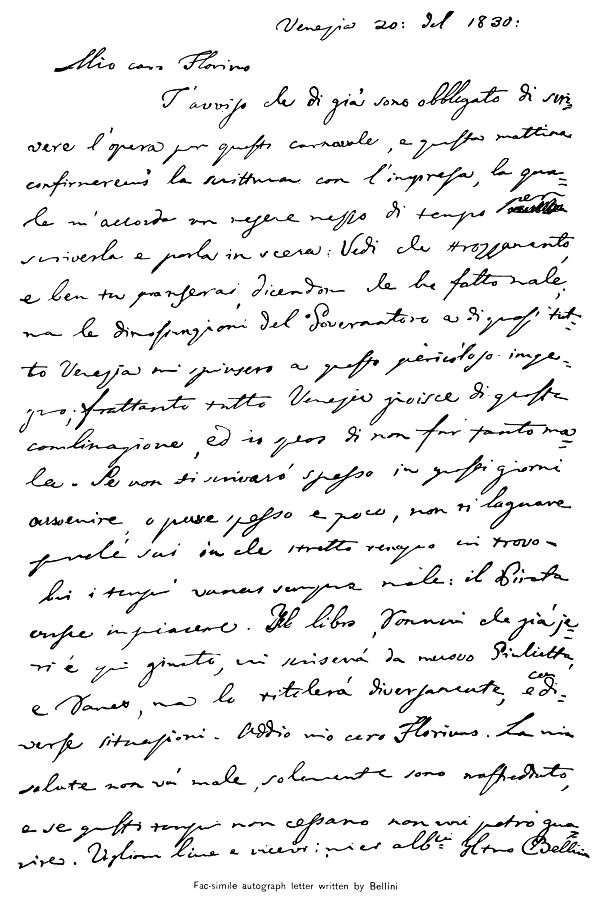 Venezia 20: del 1830:
Mio caro Florimo
T'avviso che di già sono obbligato di scri=
vere l'opera per questo carnevale, e questa mattina
confirmeremo la scrittura con l'impresa, la qua=
le m'accorda un mese mezzo di tempo per
scriverla e porla in scena: Vedi che
e ben tu penserai, dicendom che ho fatto male;
ma le dimostrazioni del Governatore e di quasi tut=
to Venezia mi spinsero a questo pericoloso impe=
gno; frattanto tutto Venezia gioisce di questa
combinazione, ed io spero di non far tanto ma=
le. Se non ti scriverò spesso in questi giorni
avvenire, o pure spesso e poco, non ti lagnare
perché sai in che stretto tempo mi trovo-
Qui i tempi vanno sempre male: il Pirata
in piacere. Il libro, Romani che già je=
ri è qui giunto, mi scriverà da nuovo Giulietta,
e Romeo, ma lo titolerà diversamente, e con di=
verse situazioni. Addio mio caro Florimo. La mia
salute non va male, solamente sono raffreddato,
e se questi tempi non cessano non mi potrò gua=
rire. line e ricevi i miei abb:cci Il tuo Bellini
Fac-simile autograph letter written by Bellini